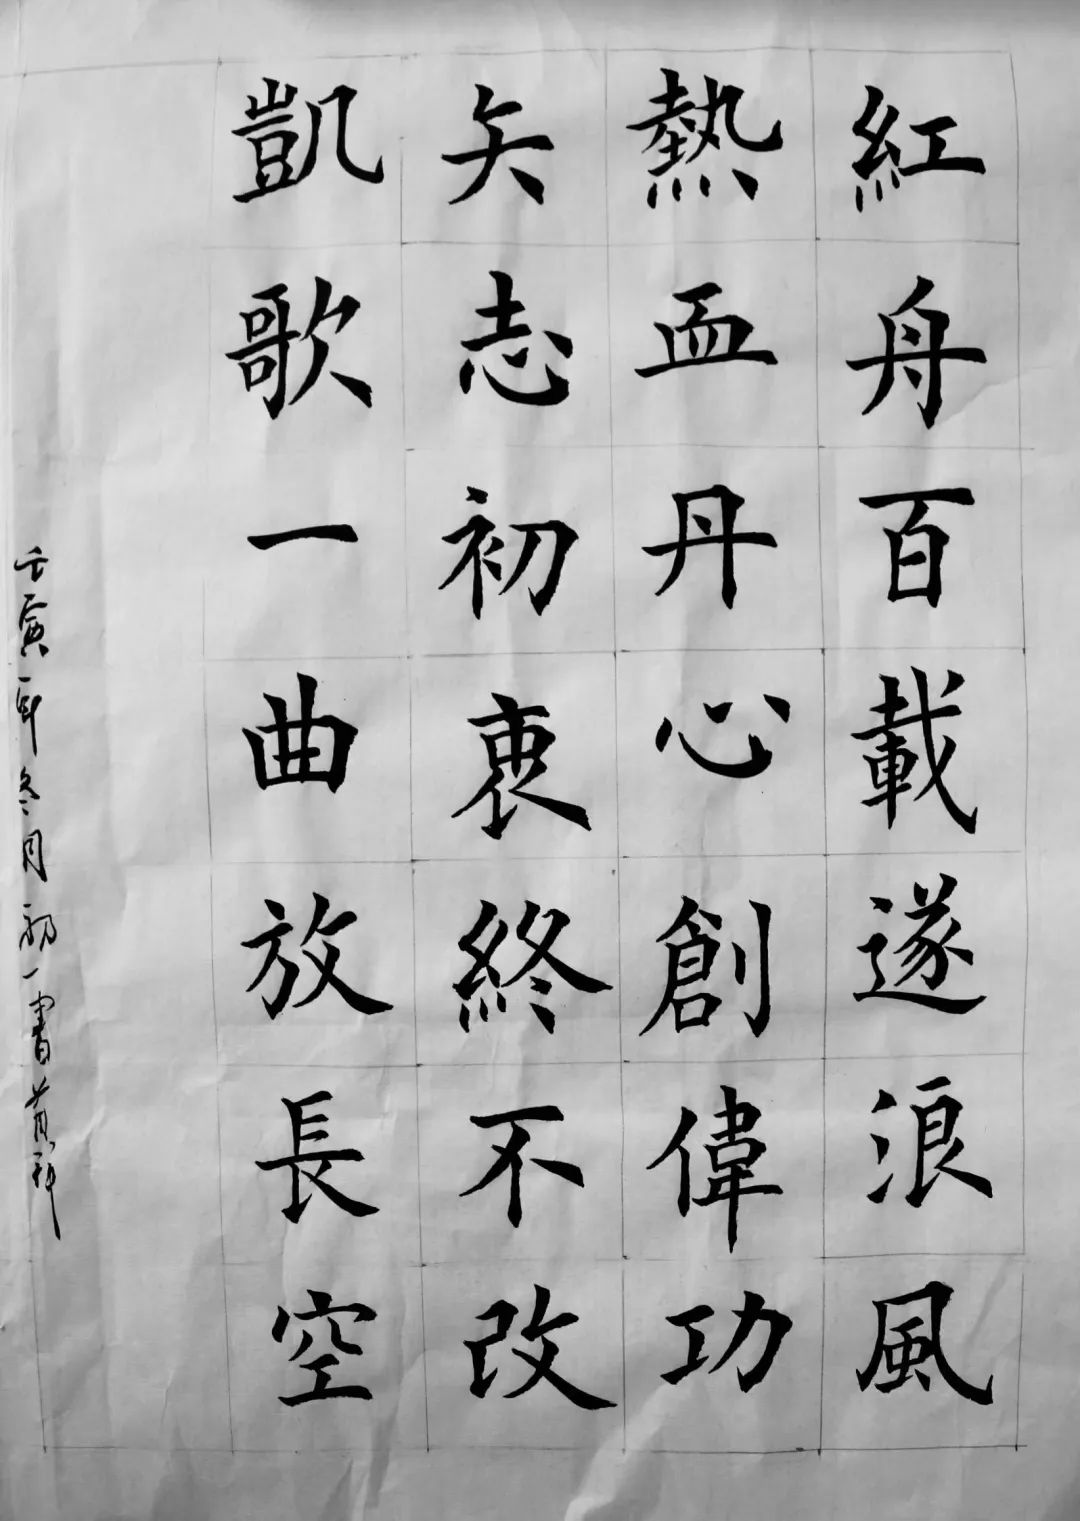 紅舟百載遂浪風
熱血丹心創偉功
矢志初衷終不改
凱歌一曲放長空
壬寅年冬月初一書黄